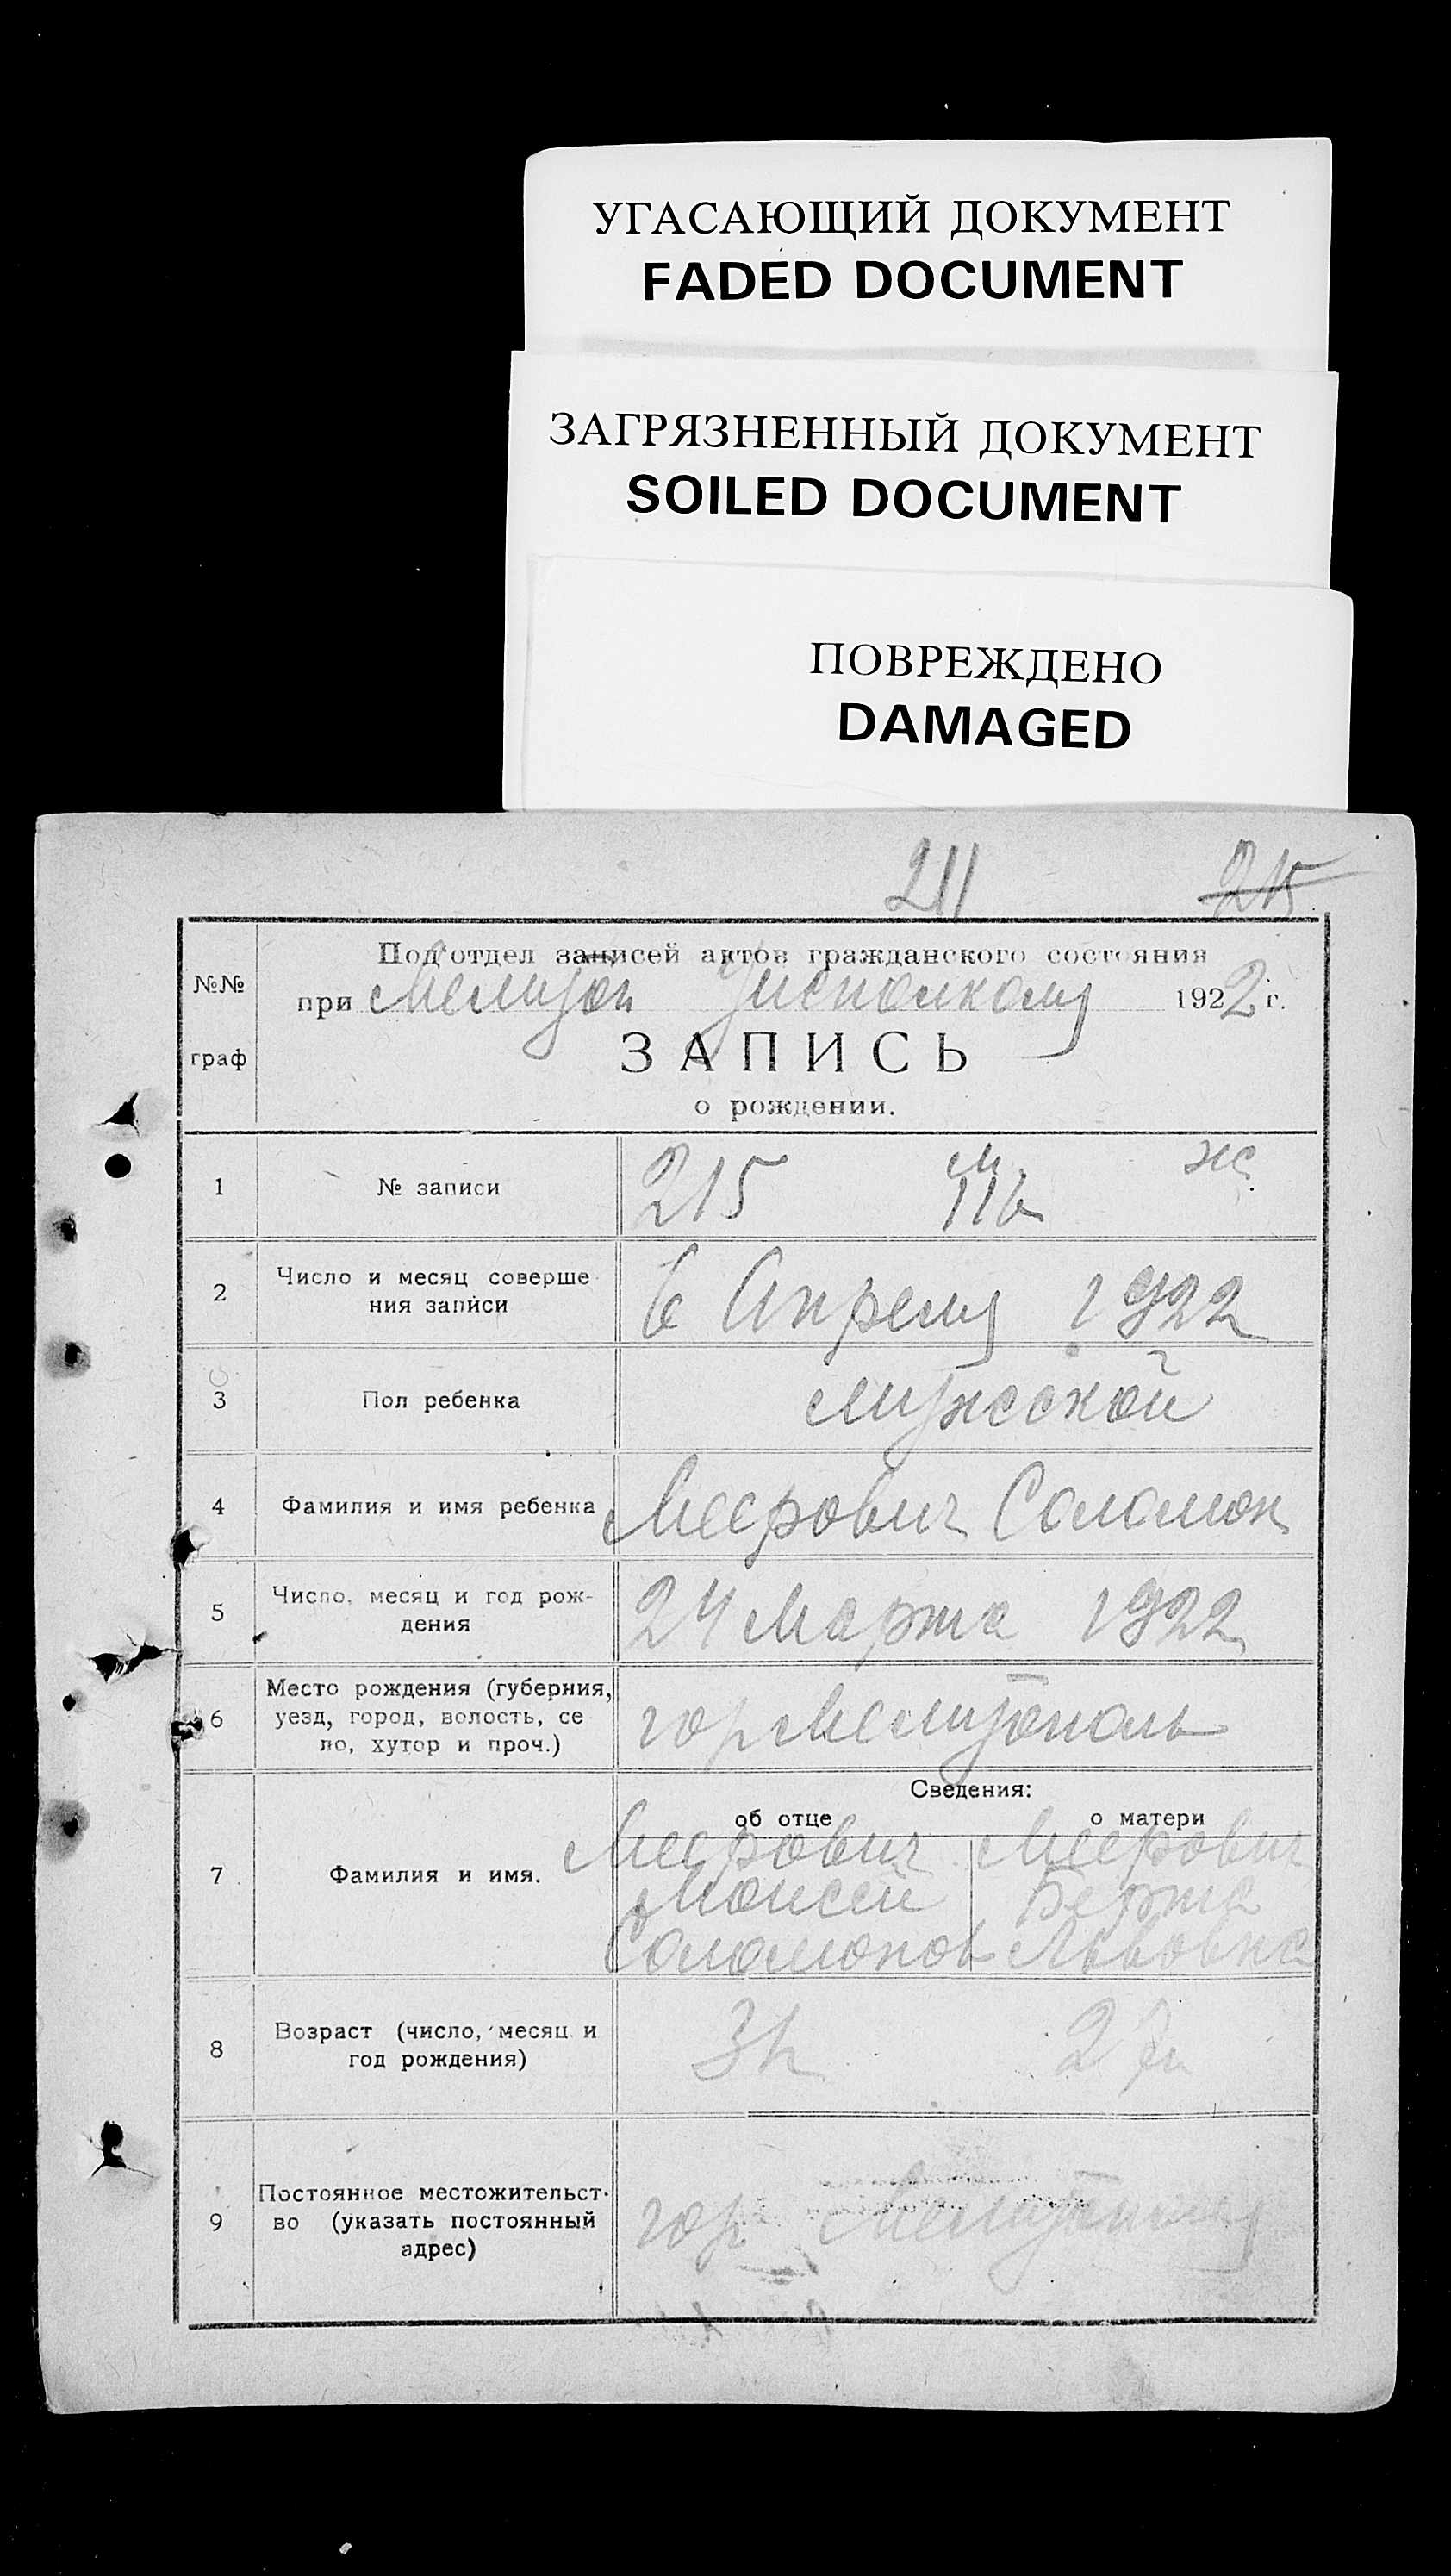 УГАСАЮЩИЙ ДОКУМЕНТ
FADED DOCUMENT
ЗАГРЯЗНЕННЫЙ ДОКУМЕНТ
SOILED DOCUMENT
ПОВРЕЖДЕНО
DAMAGED
211 215
№№ граф
Под'отдел записей актов гражданского состояния
при Мелитоп Уисполкома 1922 г.
ЗАПИСЬ
о рождении.
1 № записи 215 м. 116 ж.
2 Число и месяц соверше
ния записи 6 Апреля 1922
3 Пол ребенка мужской
4 Фамилия и имя ребенка Меерович Соломон
5 Число, месяц и год рож-
дения 24 Марта 1922
6 Место рождения (губерния,
уезд, город, волость, се
ло, хутор и проч.) гор Мелитополь
Сведения:
об отце о матери
7 Фамилия и имя. Меерович Меерович
Моисей Берта
Соломонов Львовна
8 Возраст (число, месяц и
год рождения)
9 Постоянное местожительст-
во (указать постоянный
адрес) гор Мелитополь